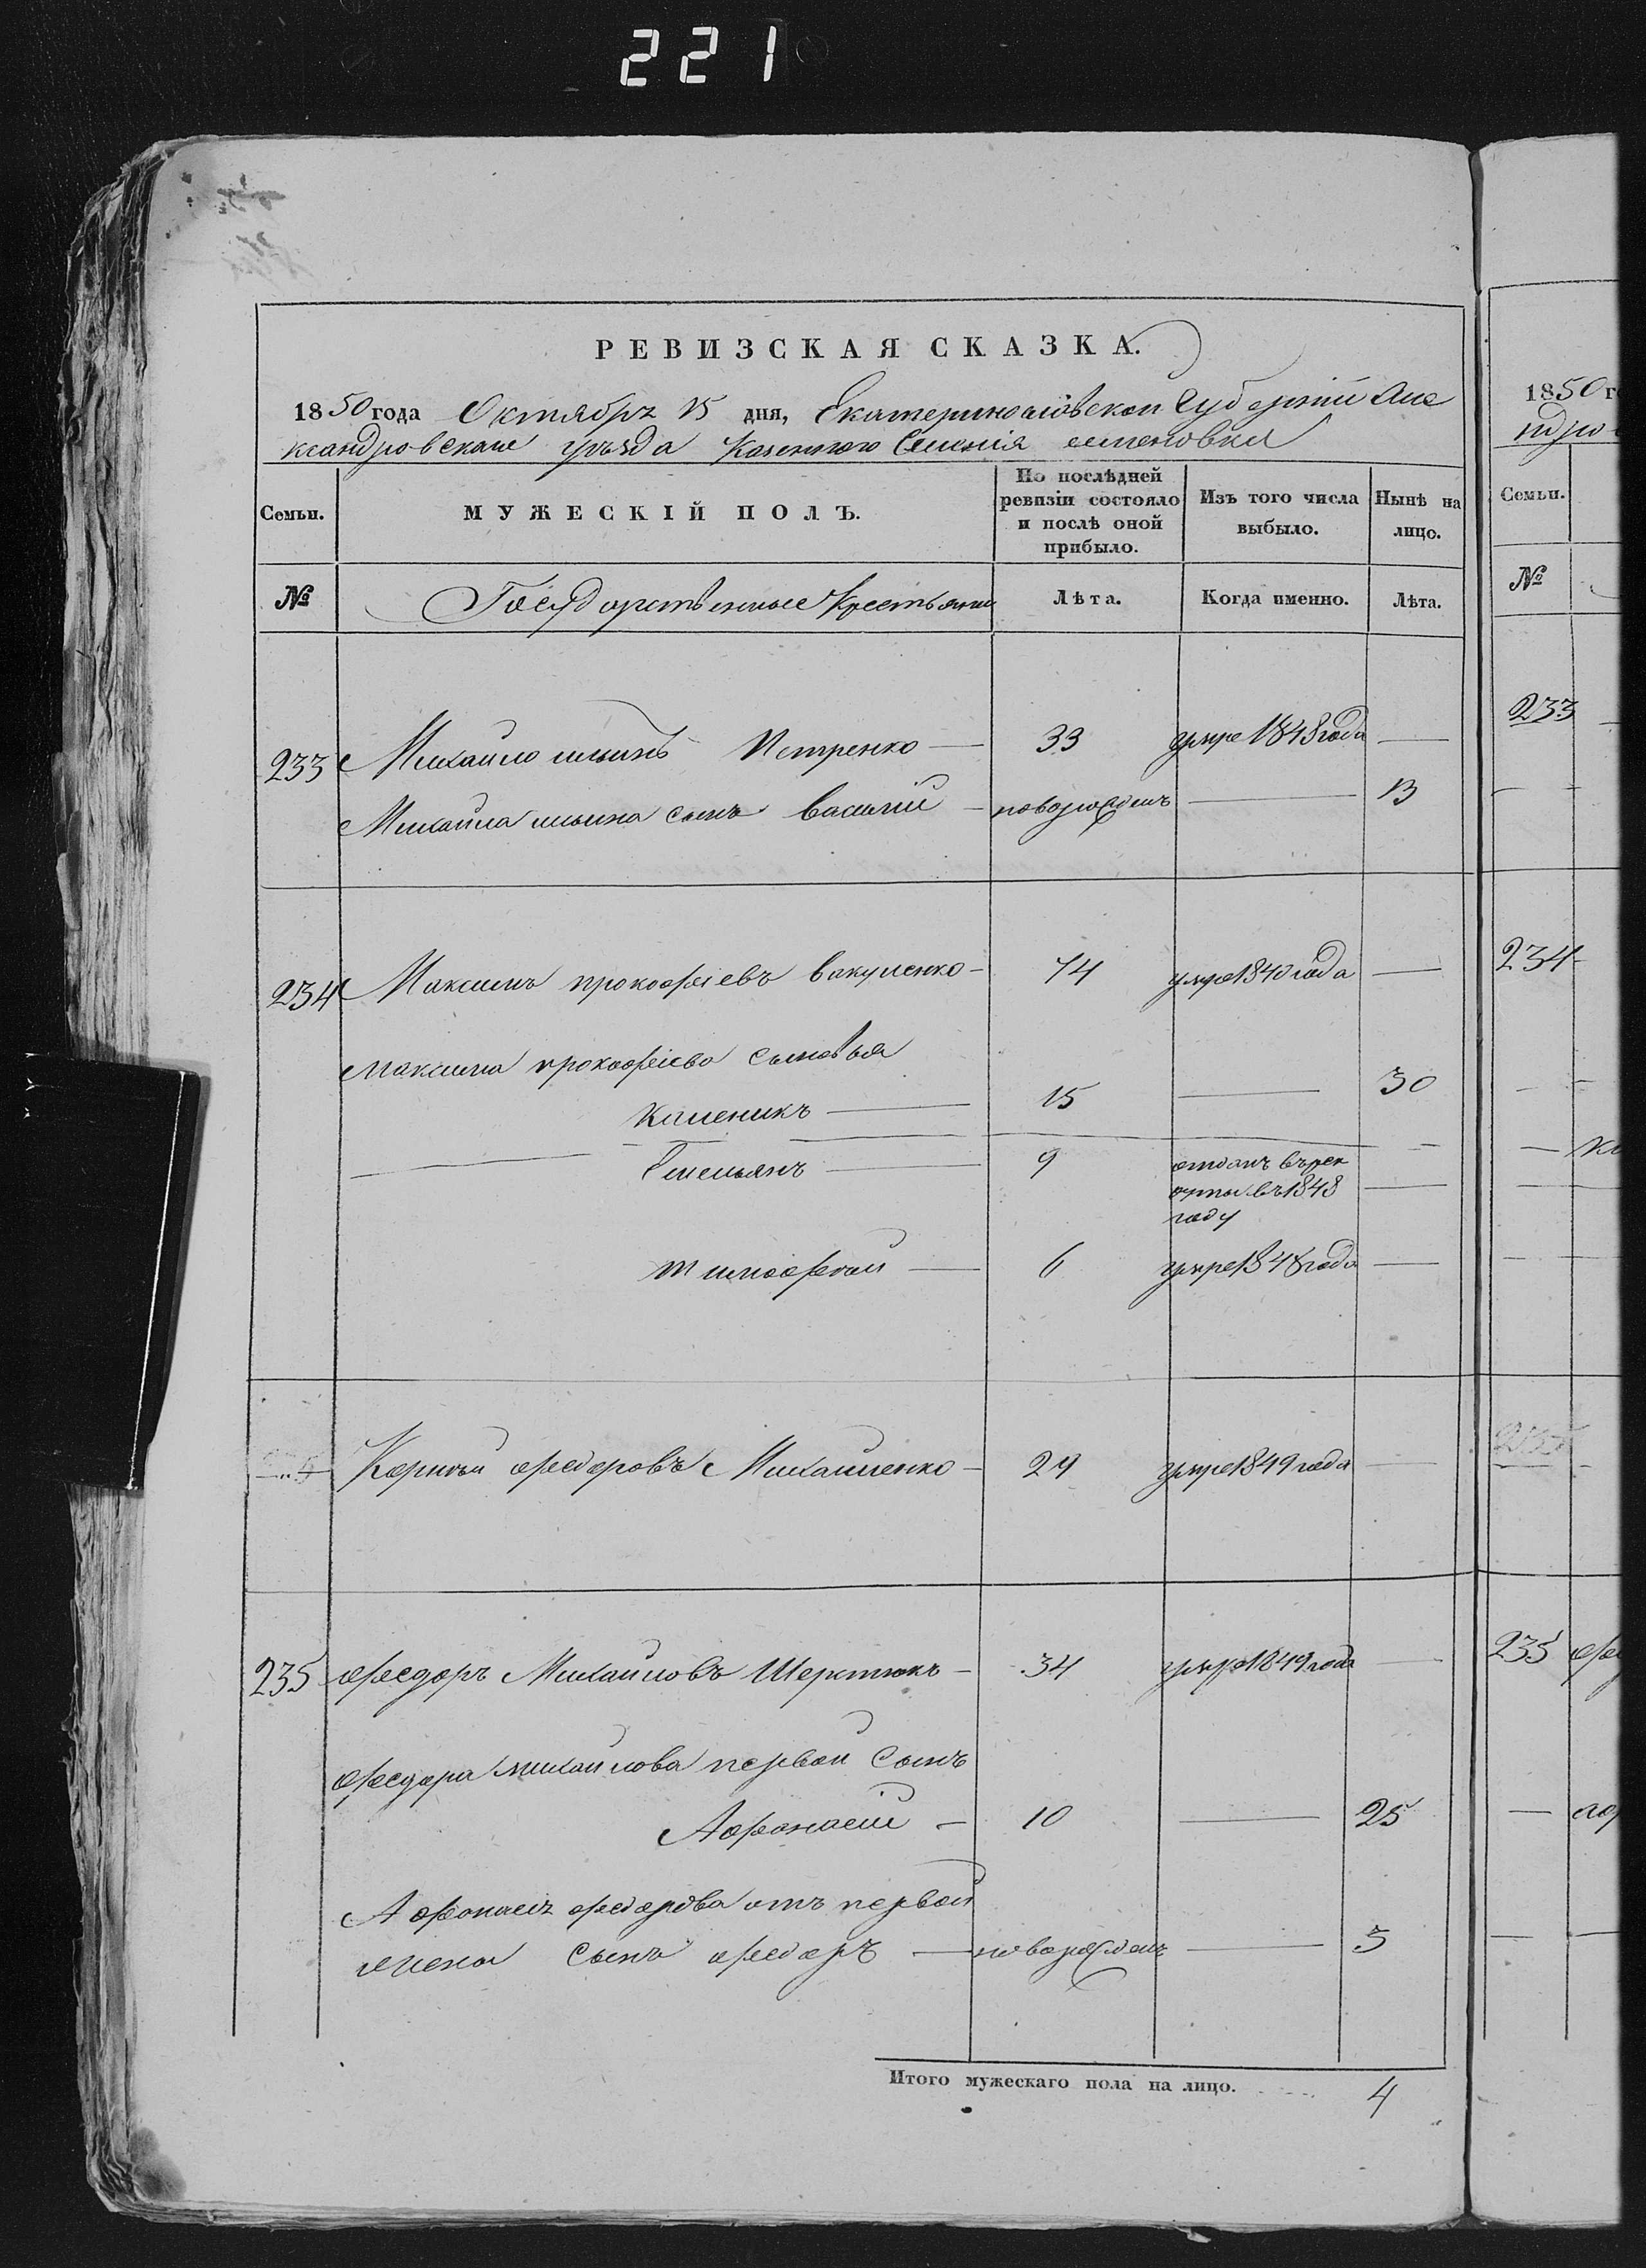 221
РЕВИЗСКАЯ СКАЗКА.
1850 года Октября 15 дня, Екатеринославской Губерніи Але
ксандровскаго уѣзда Казеннаго Селенія Семеновки
Семьи. МУЖЕСКІЙ ПОЛЪ. По послѣдней ревизіи состояло и послѣ оной прибыло. Изъ того числа выбыло. Нынѣ на лицо.
№ Государственные Крестьяни Лѣта. Когда именно. Лѣта.
233 Михайло ильинъ Петренко — 33 умре 1848 года —
Михайла ильина сынъ василій — новорожденъ — 13
234 Максимъ прокофіевъ вакуленко — 74 умре 1840 года —
Максима прокофіева сыновья
Каленикъ — 15 — 30
Емельянъ — 9 отданъ върек
руты въ 1848 —
году
тимофѣй — 6 умре 1848 года —
Корнѣй федоровъ Михайленко — 29 умре 1849 года —
235 федоръ Михайловъ Шерстюкъ — 34 умре 1849 года —
федора михайлова первой сынъ
Афонасій — 10 — 25
Афонасія федорова отъ первой
жены сынъ федоръ — новорожденъ — 5
Итого мужескаго пола на лицо. 4
1850 г
ндро
Семьи.
№
233
234
235 фе